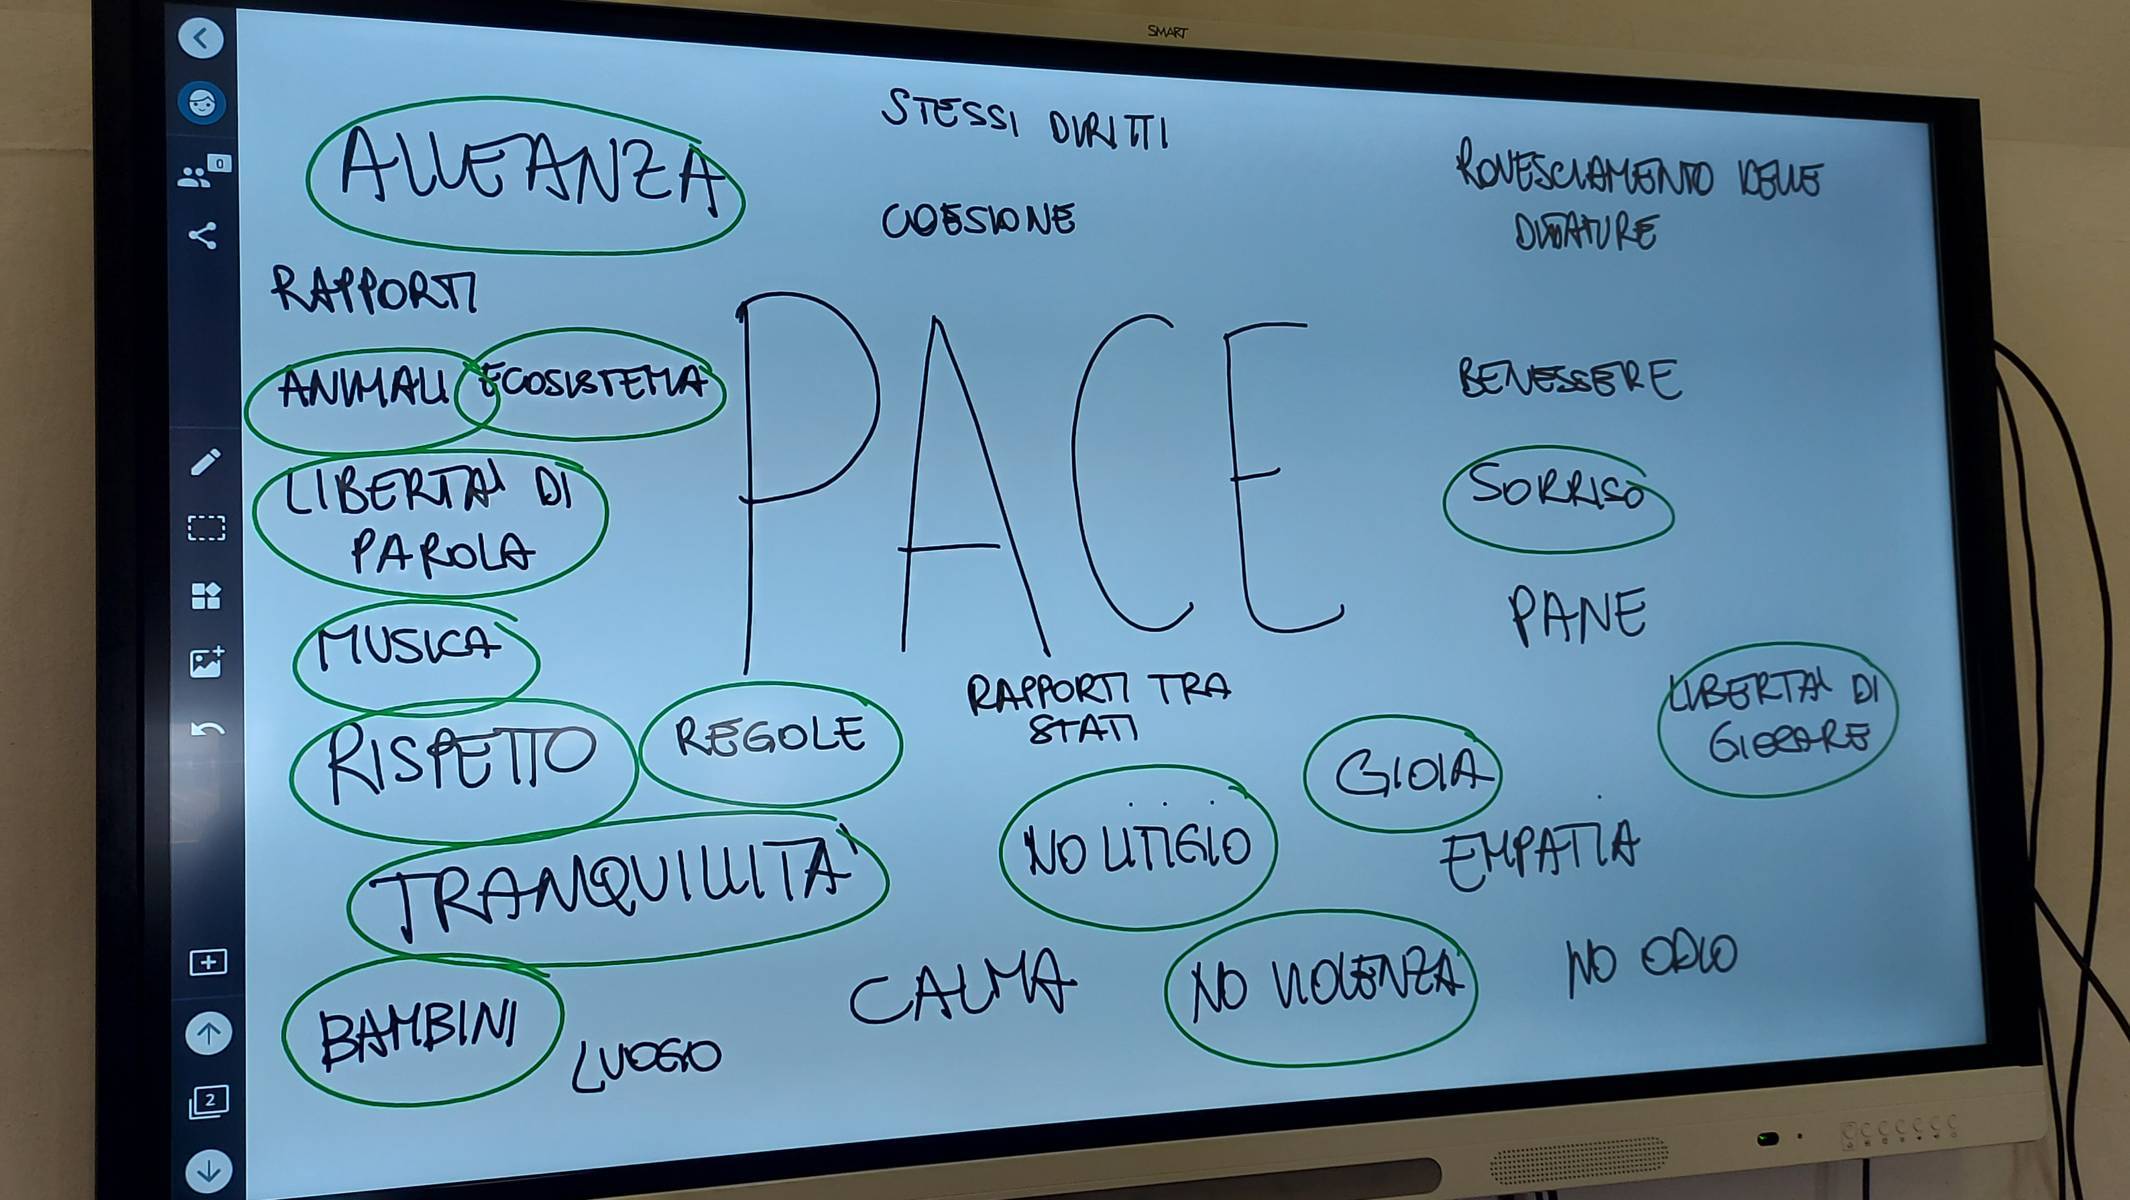 SMART
0
ALLEANZA
STESSI DIRITTI
ROVESCIAMENTO DELLE
DITTATURE
COESIONE
RAPPORTI
ANIMALI ECOSISTEMA
PACE
BENESSERE
LIBERTA' DI
PAROLA
SORRISO
MUSICA
PANE
RISPETTO
REGOLE
RAPPORTI TRA
STATI
GIOIA
LIBERTA' DI
GIOCARE
TRANQUILLITA'
NO LITIGIO
EMPATIA
BAMBINI
LUOGO
CALMA
NO VIOLENZA
NO ODIO
2